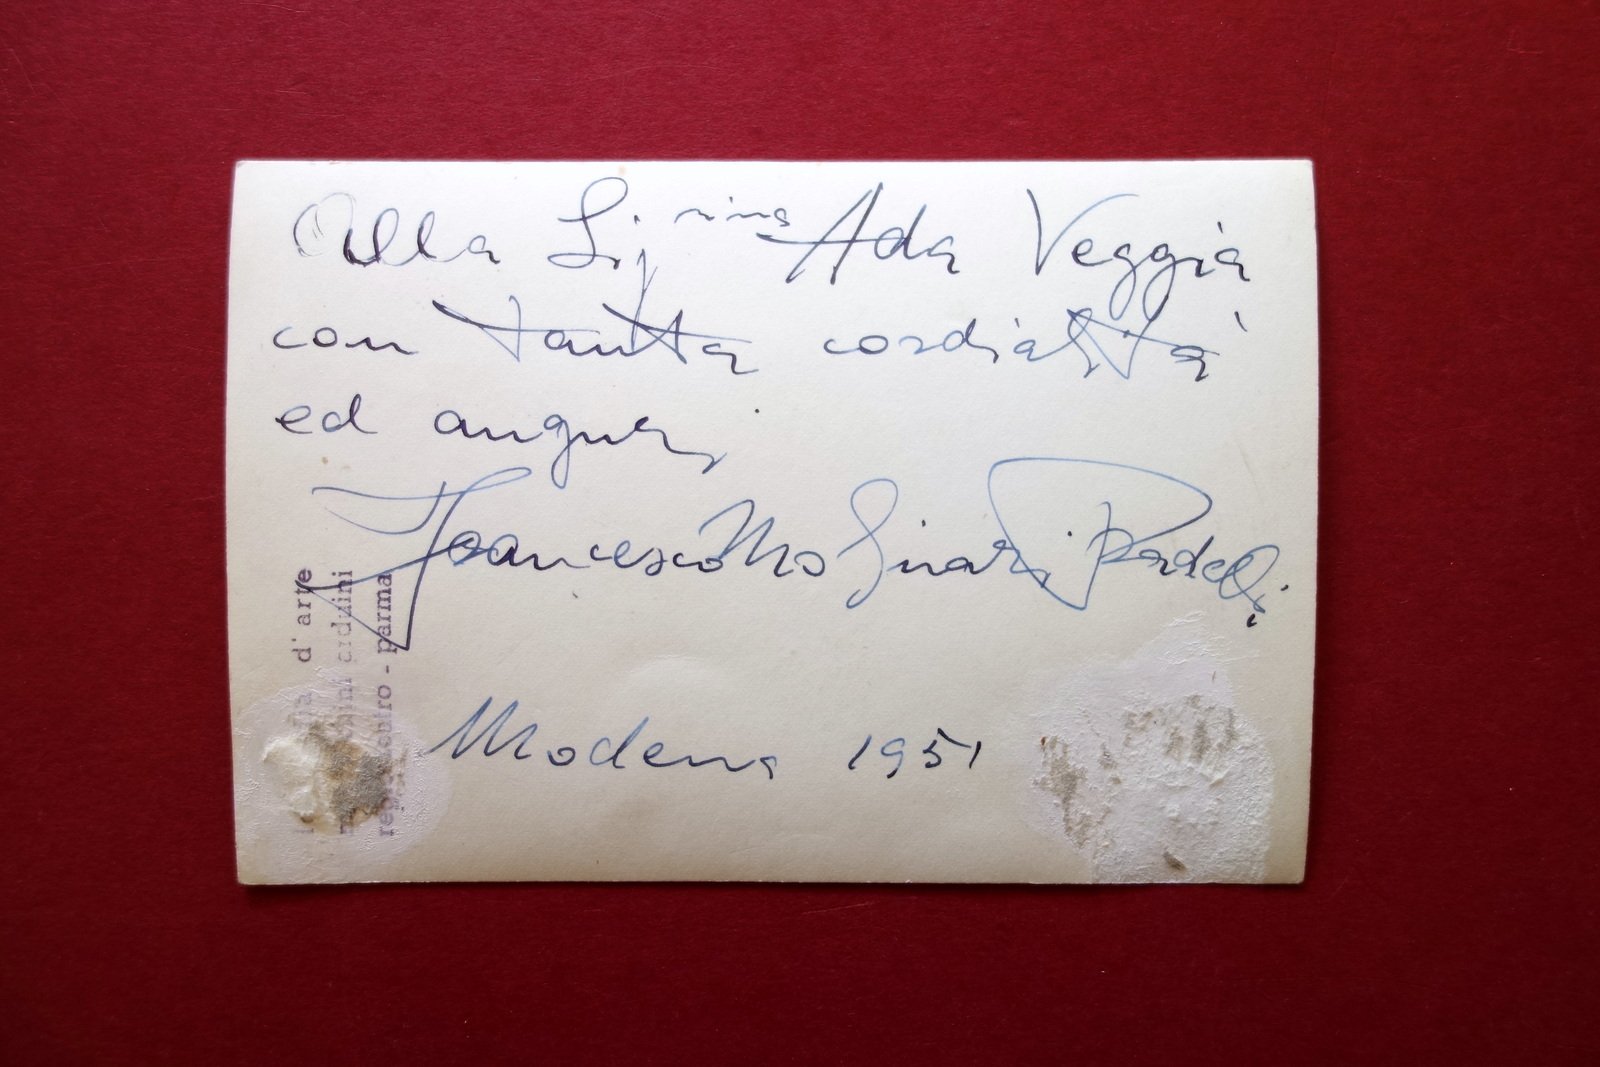 Alla Sig.rina Ada Veggia
con tanta cordialità
ed auguri
Francesco Molinari Pradelli
Modena 1951
d'arte
arduini
- parma